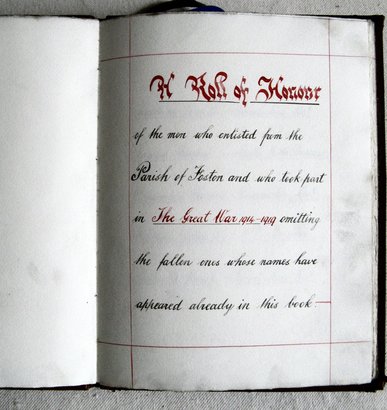 A Roll of Honour
of the men who enlisted from the
Parish of Foston and who took part
in The Great War 1914-1919 omitting
the fallen ones whose names have
appeared already in this book.